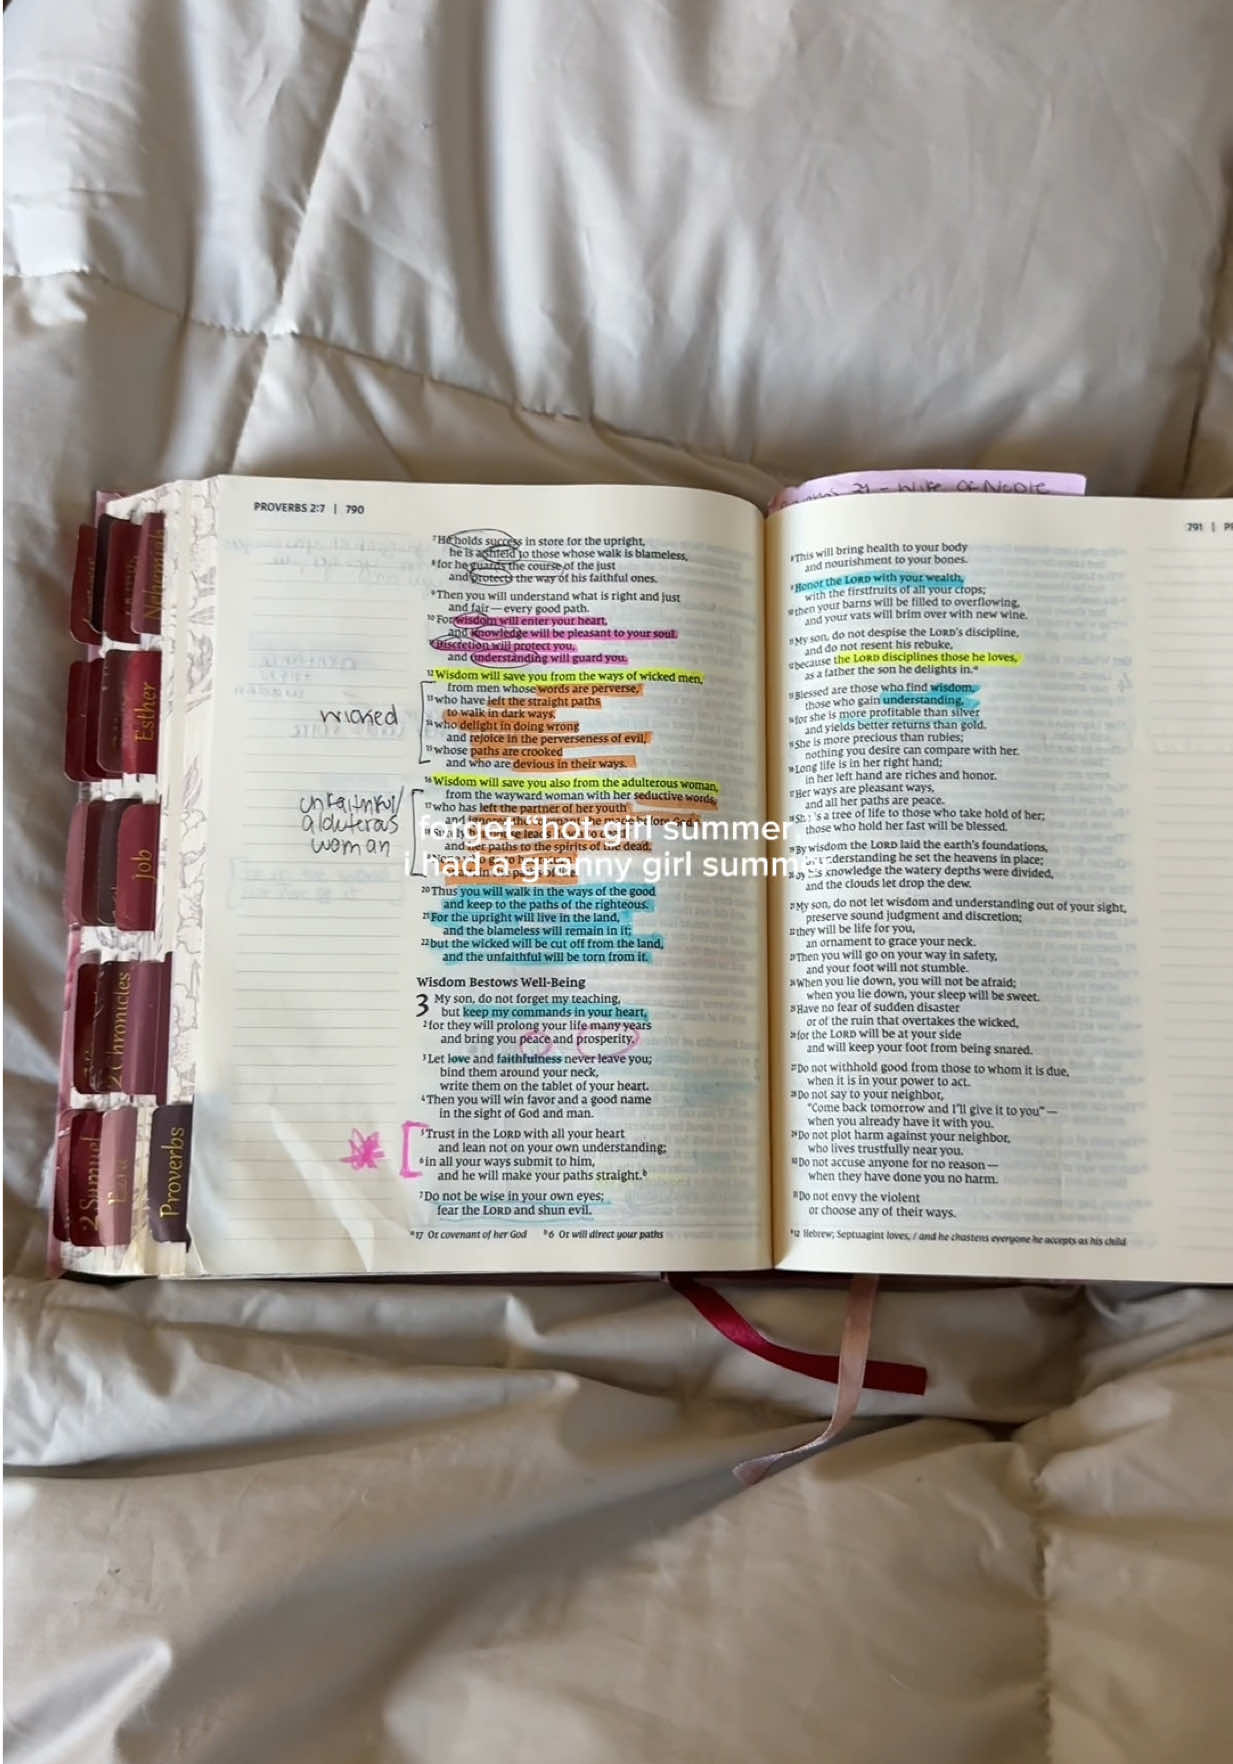 PROVERBS 2:7 | 790
7He holds success in store for the upright,
he is a shield to those whose walk is blameless,
8for he guards the course of the just
and protects the way of his faithful ones.
9Then you will understand what is right and just
and fair—every good path.
10For wisdom will enter your heart,
and knowledge will be pleasant to your soul.
11Discretion will protect you,
and understanding will guard you.
12Wisdom will save you from the ways of wicked men,
from men whose words are perverse,
13who have left the straight paths
to walk in dark ways,
14who delight in doing wrong
and rejoice in the perverseness of evil,
15whose paths are crooked
and who are devious in their ways.
wicked
16Wisdom will save you also from the adulterous woman,
from the wayward woman with her seductive words,
17who has left the partner of her youth
and ignored the covenant she made before God.a
and her paths to the spirits of the dead.
unfaithful/
aldulterous
woman
forget "hot girl summer
i had a granny girl summe
20Thus you will walk in the ways of the good
and keep to the paths of the righteous.
21For the upright will live in the land,
and the blameless will remain in it;
22but the wicked will be cut off from the land,
and the unfaithful will be torn from it.
Wisdom Bestows Well-Being
3 My son, do not forget my teaching,
but keep my commands in your heart,
2for they will prolong your life many years
and bring you peace and prosperity.
3Let love and faithfulness never leave you;
bind them around your neck,
write them on the tablet of your heart.
4Then you will win favor and a good name
in the sight of God and man.
5Trust in the LORD with all your heart
and lean not on your own understanding;
6in all your ways submit to him,
and he will make your paths straight.b
7Do not be wise in your own eyes;
fear the LORD and shun evil.
a17 Or covenant of her God b6 Or will direct your paths
31 - Wife of Noble
791 |
8This will bring health to your body
and nourishment to your bones.
9Honor the LORD with your wealth,
with the firstfruits of all your crops;
10then your barns will be filled to overflowing,
and your vats will brim over with new wine.
11My son, do not despise the LORD's discipline,
and do not resent his rebuke,
12because the LORD disciplines those he loves,
as a father the son he delights in.a
13Blessed are those who find wisdom,
those who gain understanding,
14for she is more profitable than silver
and yields better returns than gold.
15She is more precious than rubies;
nothing you desire can compare with her.
16Long life is in her right hand;
in her left hand are riches and honor.
17Her ways are pleasant ways,
and all her paths are peace.
18She is a tree of life to those who take hold of her;
those who hold her fast will be blessed.
19By wisdom the LORD laid the earth's foundations,
by understanding he set the heavens in place;
20by his knowledge the watery depths were divided,
and the clouds let drop the dew.
21My son, do not let wisdom and understanding out of your sight,
preserve sound judgment and discretion;
22they will be life for you,
an ornament to grace your neck.
23Then you will go on your way in safety,
and your foot will not stumble.
24When you lie down, you will not be afraid;
when you lie down, your sleep will be sweet.
25Have no fear of sudden disaster
or of the ruin that overtakes the wicked,
26for the LORD will be at your side
and will keep your foot from being snared.
27Do not withhold good from those to whom it is due,
when it is in your power to act.
28Do not say to your neighbor,
"Come back tomorrow and I'll give it to you"—
when you already have it with you.
29Do not plot harm against your neighbor,
who lives trustfully near you.
30Do not accuse anyone for no reason—
when they have done you no harm.
31Do not envy the violent
or choose any of their ways.
a12 Hebrew; Septuagint loves, / and he chastens everyone he accepts as his child
Nehemiah
Esther
Job
2 Chronicles
2 Samuel
Ezra
Proverbs